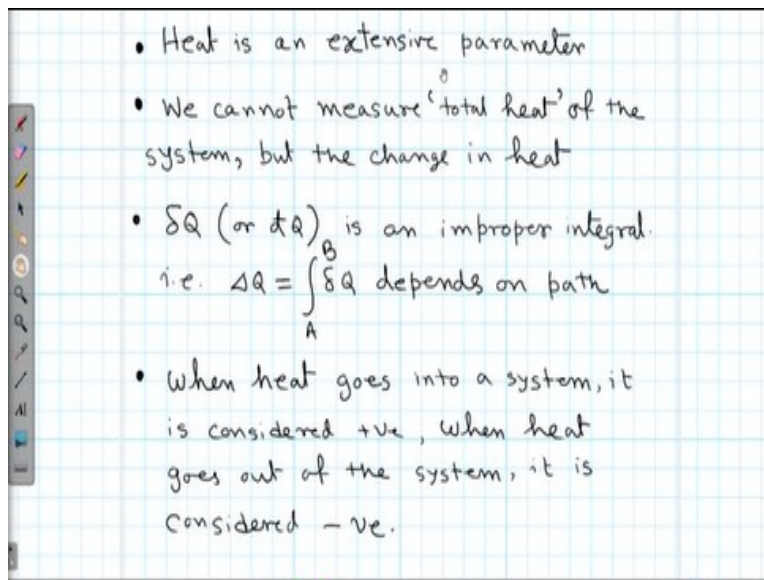 • Heat is an extensive parameter
• We cannot measure 'total heat' of the
system, but the change in heat
• δQ (or đQ) is an improper integral.
i.e. ΔQ = ∫_A^B δQ depends on path
• When heat goes into a system, it
is considered +ve, when heat
goes out of the system, it is
considered -ve.
AI